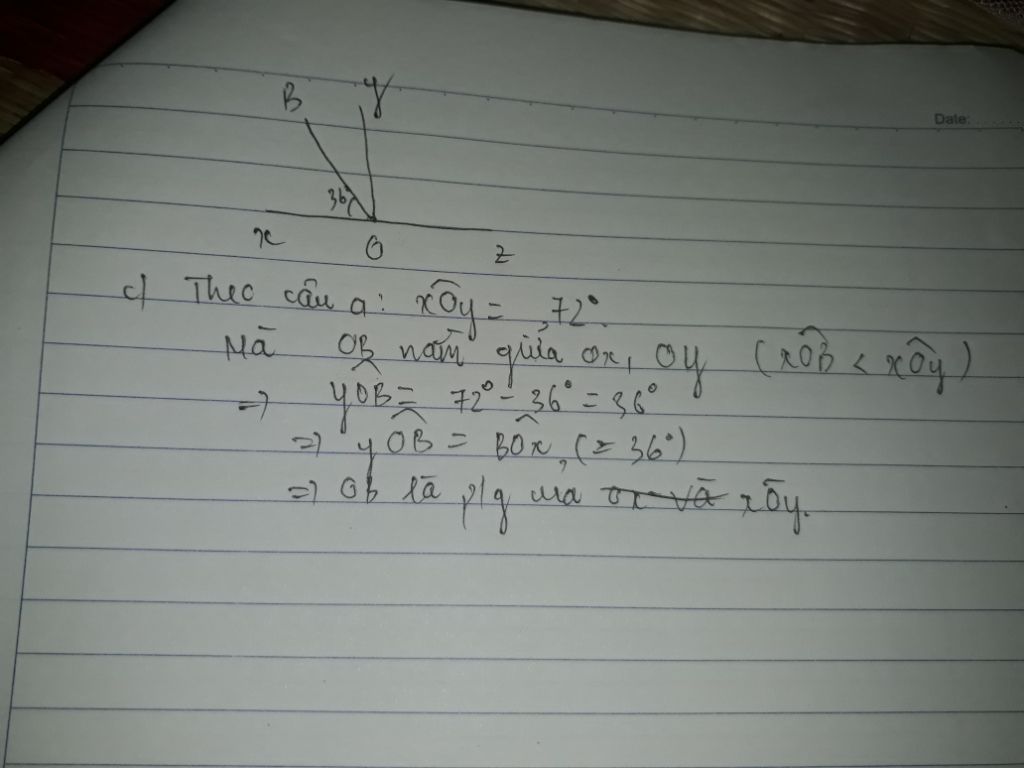 B y
Date:
36°
x O z
c) Theo câu a: xÔy = 72°.
Mà OB nằm giữa Ox, Oy (xÔB < xÔy)
=> yÔB = 72° - 36° = 36°
=> yÔB = BÔx, (= 36°)
=> OB là p/g của Ox và xÔy.